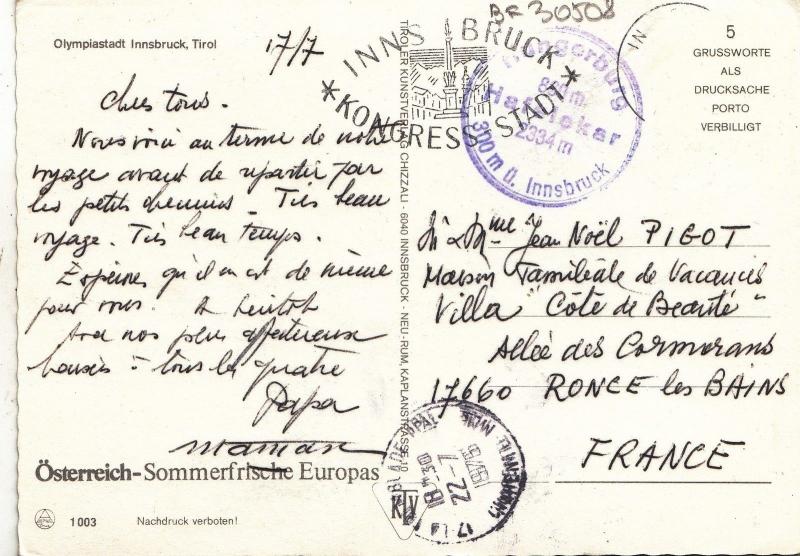 BF 30508
Olympiastadt Innsbruck, Tirol
17/7
Chers tous.
Nous voici au terme de notre
voyage avant de repartir par
les petits chemins. Très beau
voyage. Très beau temps.
Espérons qu'il en est de même
pour vous. A bientôt
Avec nos plus affectueux
baisers à tous les quatre
Papa
Maman
Österreich-Sommerfrische Europas
1003
Nachdruck verboten!
TIROLER KUNSTVERLAG CHIZZALI · 6040 INNSBRUCK - NEU-RUM, KAPLANSTRASSE 10
KTV
INNSBRUCK
*KONGRESSSTADT*
Hungerburg
Hafelekar
2334 m
300 m ü. Innsbruck
5
GRUSSWORTE
ALS
DRUCKSACHE
PORTO
VERBILLIGT
M. & Mme Jean Noël PIGOT
Maison Familiale de Vacances
Villa "Côte de Beauté"
Allée des Cormorans
17660 RONCE les BAINS
FRANCE
22-7